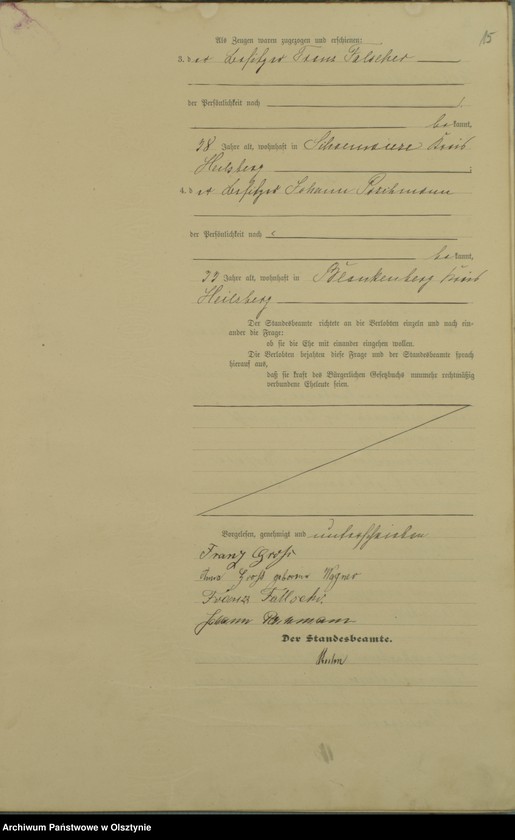 15
Als Zeugen waren zugezogen und erschienen:
3. der Besitzer Franz
der Persönlichkeit nach
bekannt,
38 Jahre alt, wohnhaft in Schoenwiese Kreis
Heilsberg
4. der Besitzer Johann
der Persönlichkeit nach
bekannt,
33 Jahre alt, wohnhaft in Blankenberg Kreis
Heilsberg
Der Standesbeamte richtete an die Verlobten einzeln und nach ein-
ander die Frage:
ob sie die Ehe mit einander eingehen wollen.
Die Verlobten bejahten diese Frage und der Standesbeamte sprach
hierauf aus,
daß sie kraft des Bürgerlichen Gesetzbuchs nunmehr rechtmäßig
verbundene Eheleute seien.
Vorgelesen, genehmigt und unterschrieben
Franz Groß
Groß geborene Wagner
Franz
Johann
Der Standesbeamte.
Archiwum Państwowe w Olsztynie